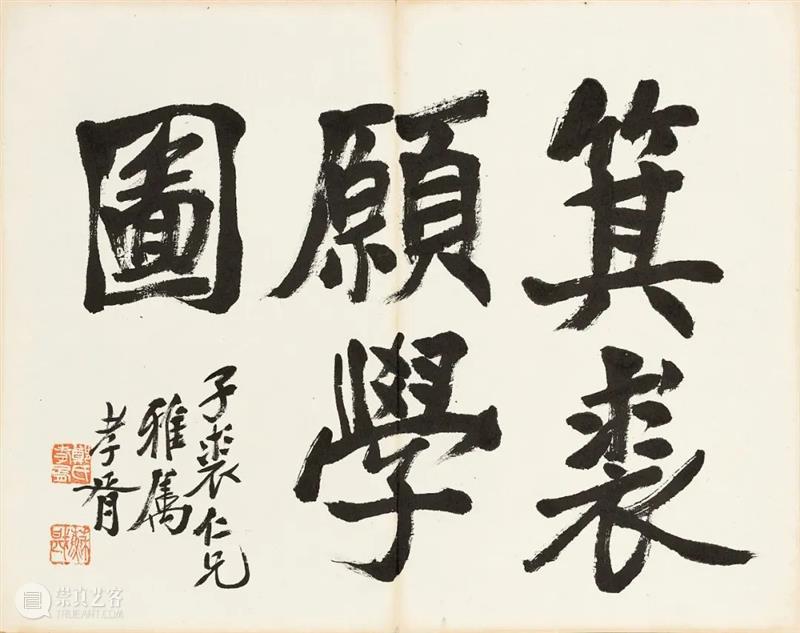 箕裘
願學
圖
子裘仁兄
雅屬
孝胥
崇真艺客
TRUEART.COM